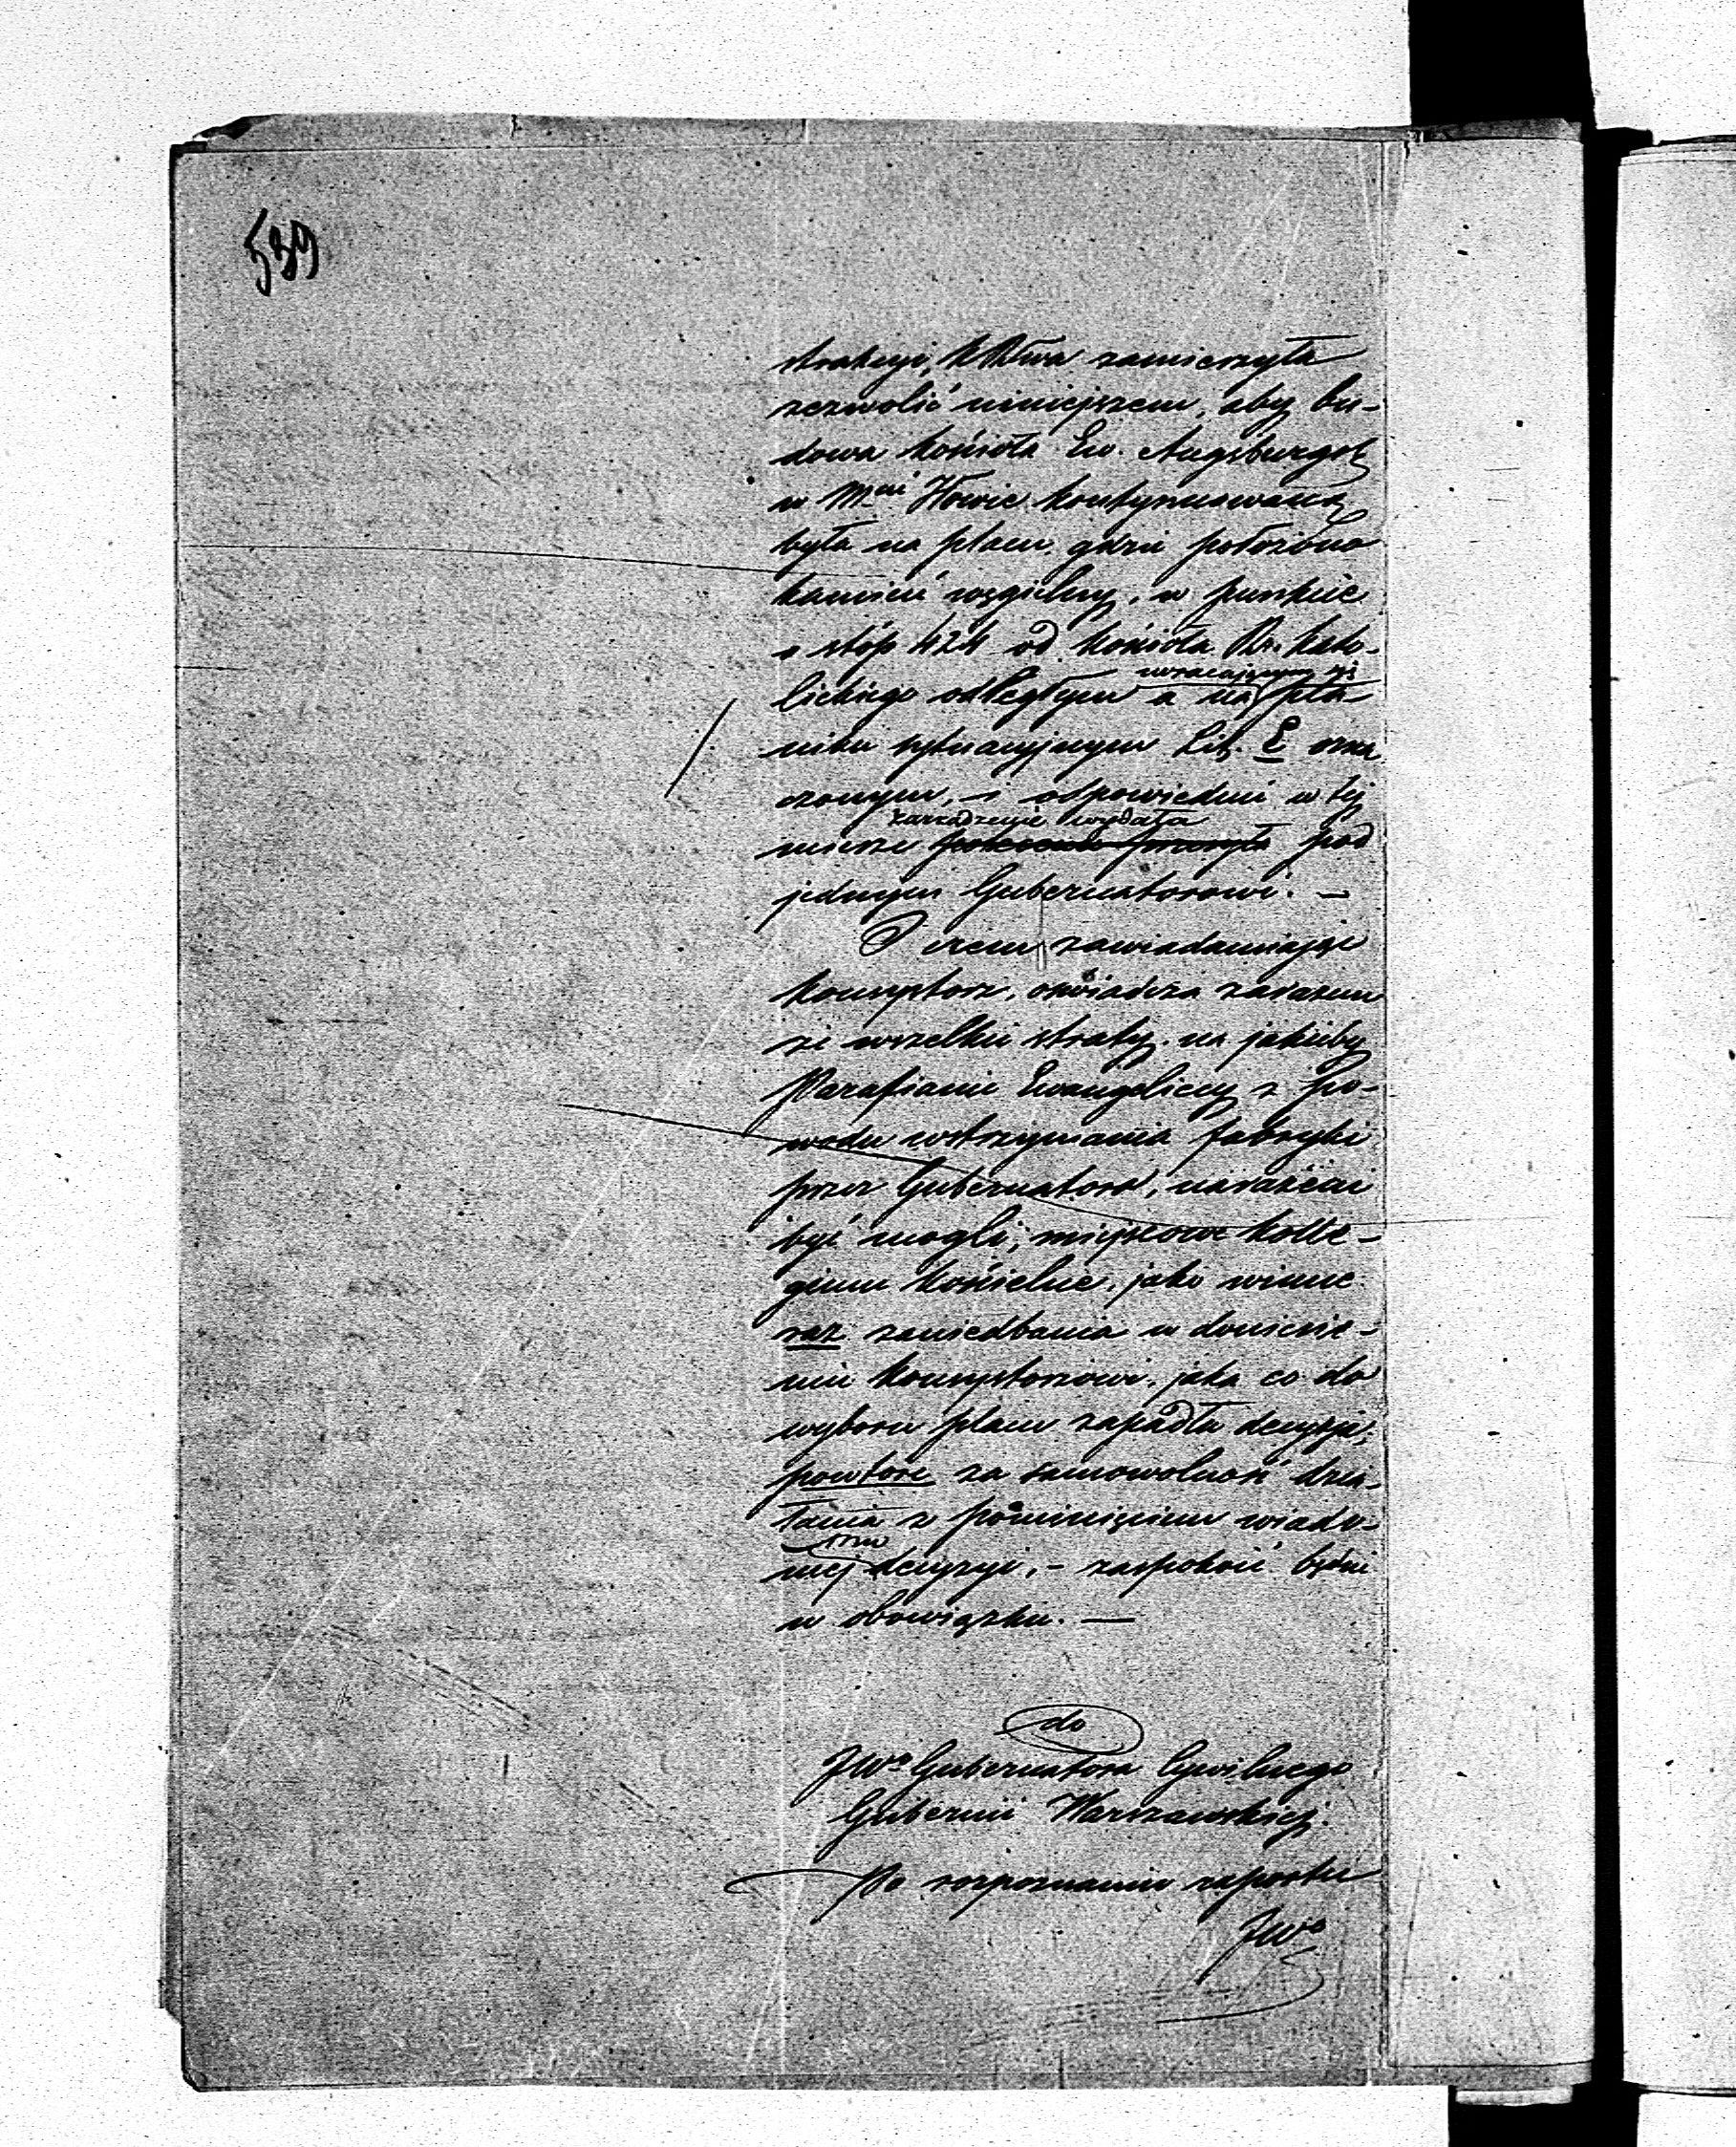 539
strakcyi, K. Rtwa zamierzyła
zezwolić niniejszem, aby bu-
dowa kościoła Ew. Augsburgo
w Mcie Iłowie kontynuowana
była na placu gdzie położono
kamień węgielny, w punkcie
o stóp 424 od kościoła Rz. Kato-
lickiego odległym a na
wracającym się
pla-
niku sytuacyjnym Lit. E ozna
czonym, i odpowiednie w tej
zarządzenie wydała
mierze polecenie przesyła pod
jednym Gubernatorowi. —
O czem zawiadamiając
Konsystorz, oświadcza zarazem
że wszelkie straty, na jakieby
Parafianie Ewangeliccy z po-
wodu wstrzymania fabryki
przez Gubernatora, narażeni
być mogli, miejscowe kolle-
gium kościelne, jako winne
raz zaniedbania w doniesie-
niu Konsystorzowi, jaka co do
wyboru placu zapadła decyzja;
powtóre za samowolność dzia-
łania z pominięciem wiado-
mej decyzyi, – zaspokoić będzie
w obowiązku. —
do
JWo Gubernatora Cywilnego
Gubernii Warszawskiej.
Po rozpoznaniu raportu
JWo